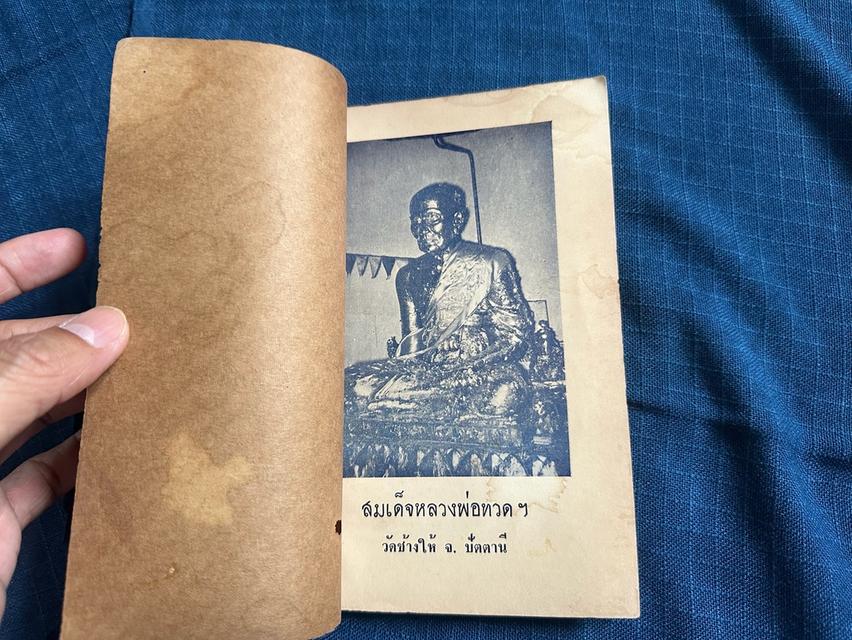 สมเด็จหลวงพ่อทวด ฯ
วัดช้างให้ จ. ปัตตานี